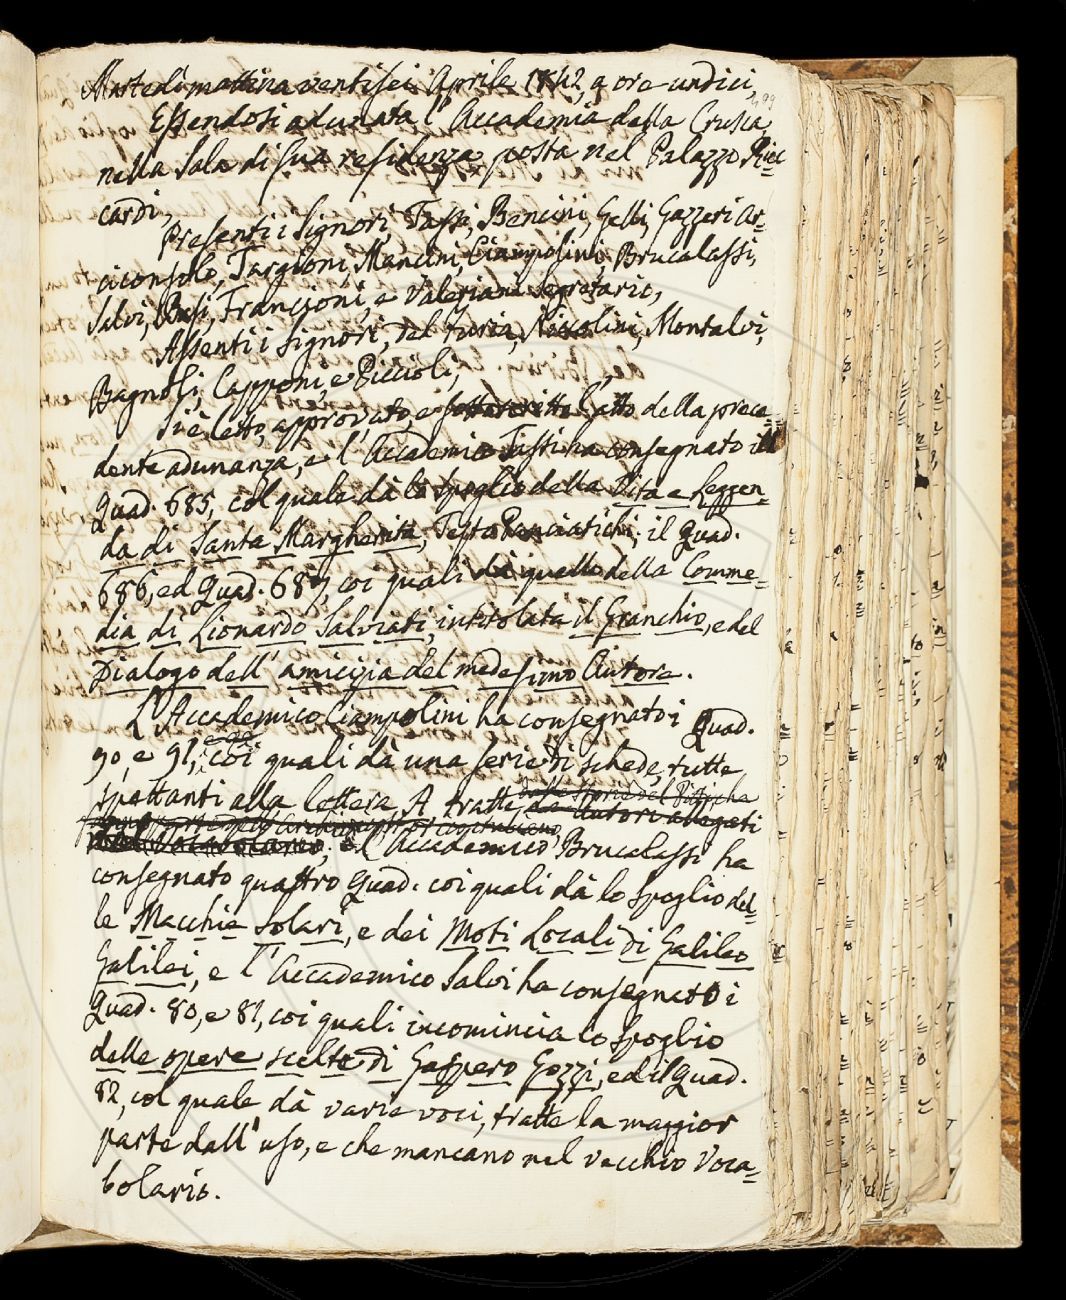 Martedì mattina ventisei Aprile 1842, a ore undici,
Essendosi adunata l'Accademia della Crusca
nella Sala di sua residenza posta nel Palazzo Ric=
cardi,
Presenti i Signori Tassi, Bencini, Gelli, Gazzeri Ar=
ciconsolo, Targioni, Mancini, Ciampolini, Brucalassi,
Salvi, Busi, Francioni, e Valeriani Segretario,
Assenti i Signori, Del Furia, Niccolini, Montalvi,
Bagnoli, Capponi, e Piccioli,
Si è letto, approvato, e sottoscritto l'atto della prece=
dente adunanza, e l'Accademico Tassi ha consegnato il
Quad. 685, col quale dà lo spoglio della Vita e Leggen=
da di Santa Margherita, Testo Panciatichi; il Quad.
686, ed Quad. 687, coi quali dà quello della Comme=
dia di Lionardo Salviati, intitolata il Granchio, e del
Dialogo dell'amicizia del medesimo Autore.
L'Accademico Ciampolini ha consegnato i Quad.
90, e 91, coi quali dà una serie di schede, tutte
spettanti alla lettera A tratte da Autori allegati
dalle Storie del Pitti, che
nel Vocabolario; e l'Accademico Brucalassi ha
consegnato quattro Quad. coi quali dà lo spoglio del=
le Macchie Solari, e dei Moti Locali di Galileo
Galilei, e l'Accademico Salvi ha consegnato i
Quad. 80, e 81, coi quali incomincia lo spoglio
delle opere scelte di Gaspero Gozzi, ed il Quad.
82, col quale dà varie voci, tratte la maggior
parte dall'uso, e che mancano nel vecchio Voca=
bolario.